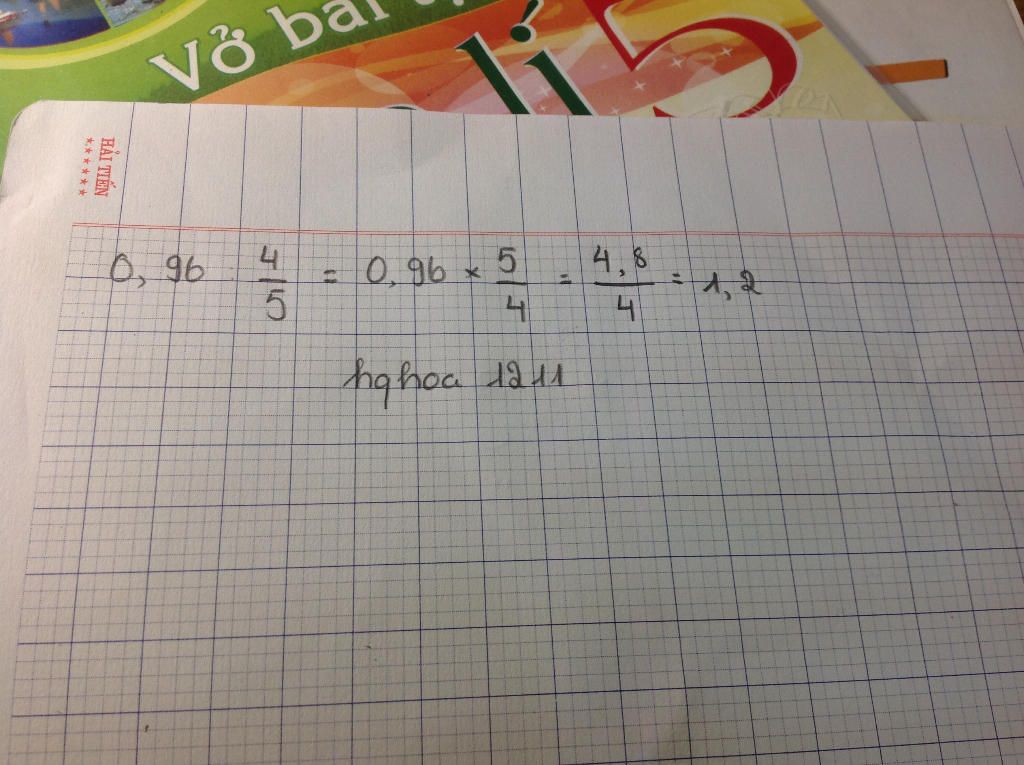 Vở bài
lí 5
HẢI TIẾN
0,96 : 4/5 = 0,96 × 5/4 = 4,8/4 = 1,2
hqhoa 1211